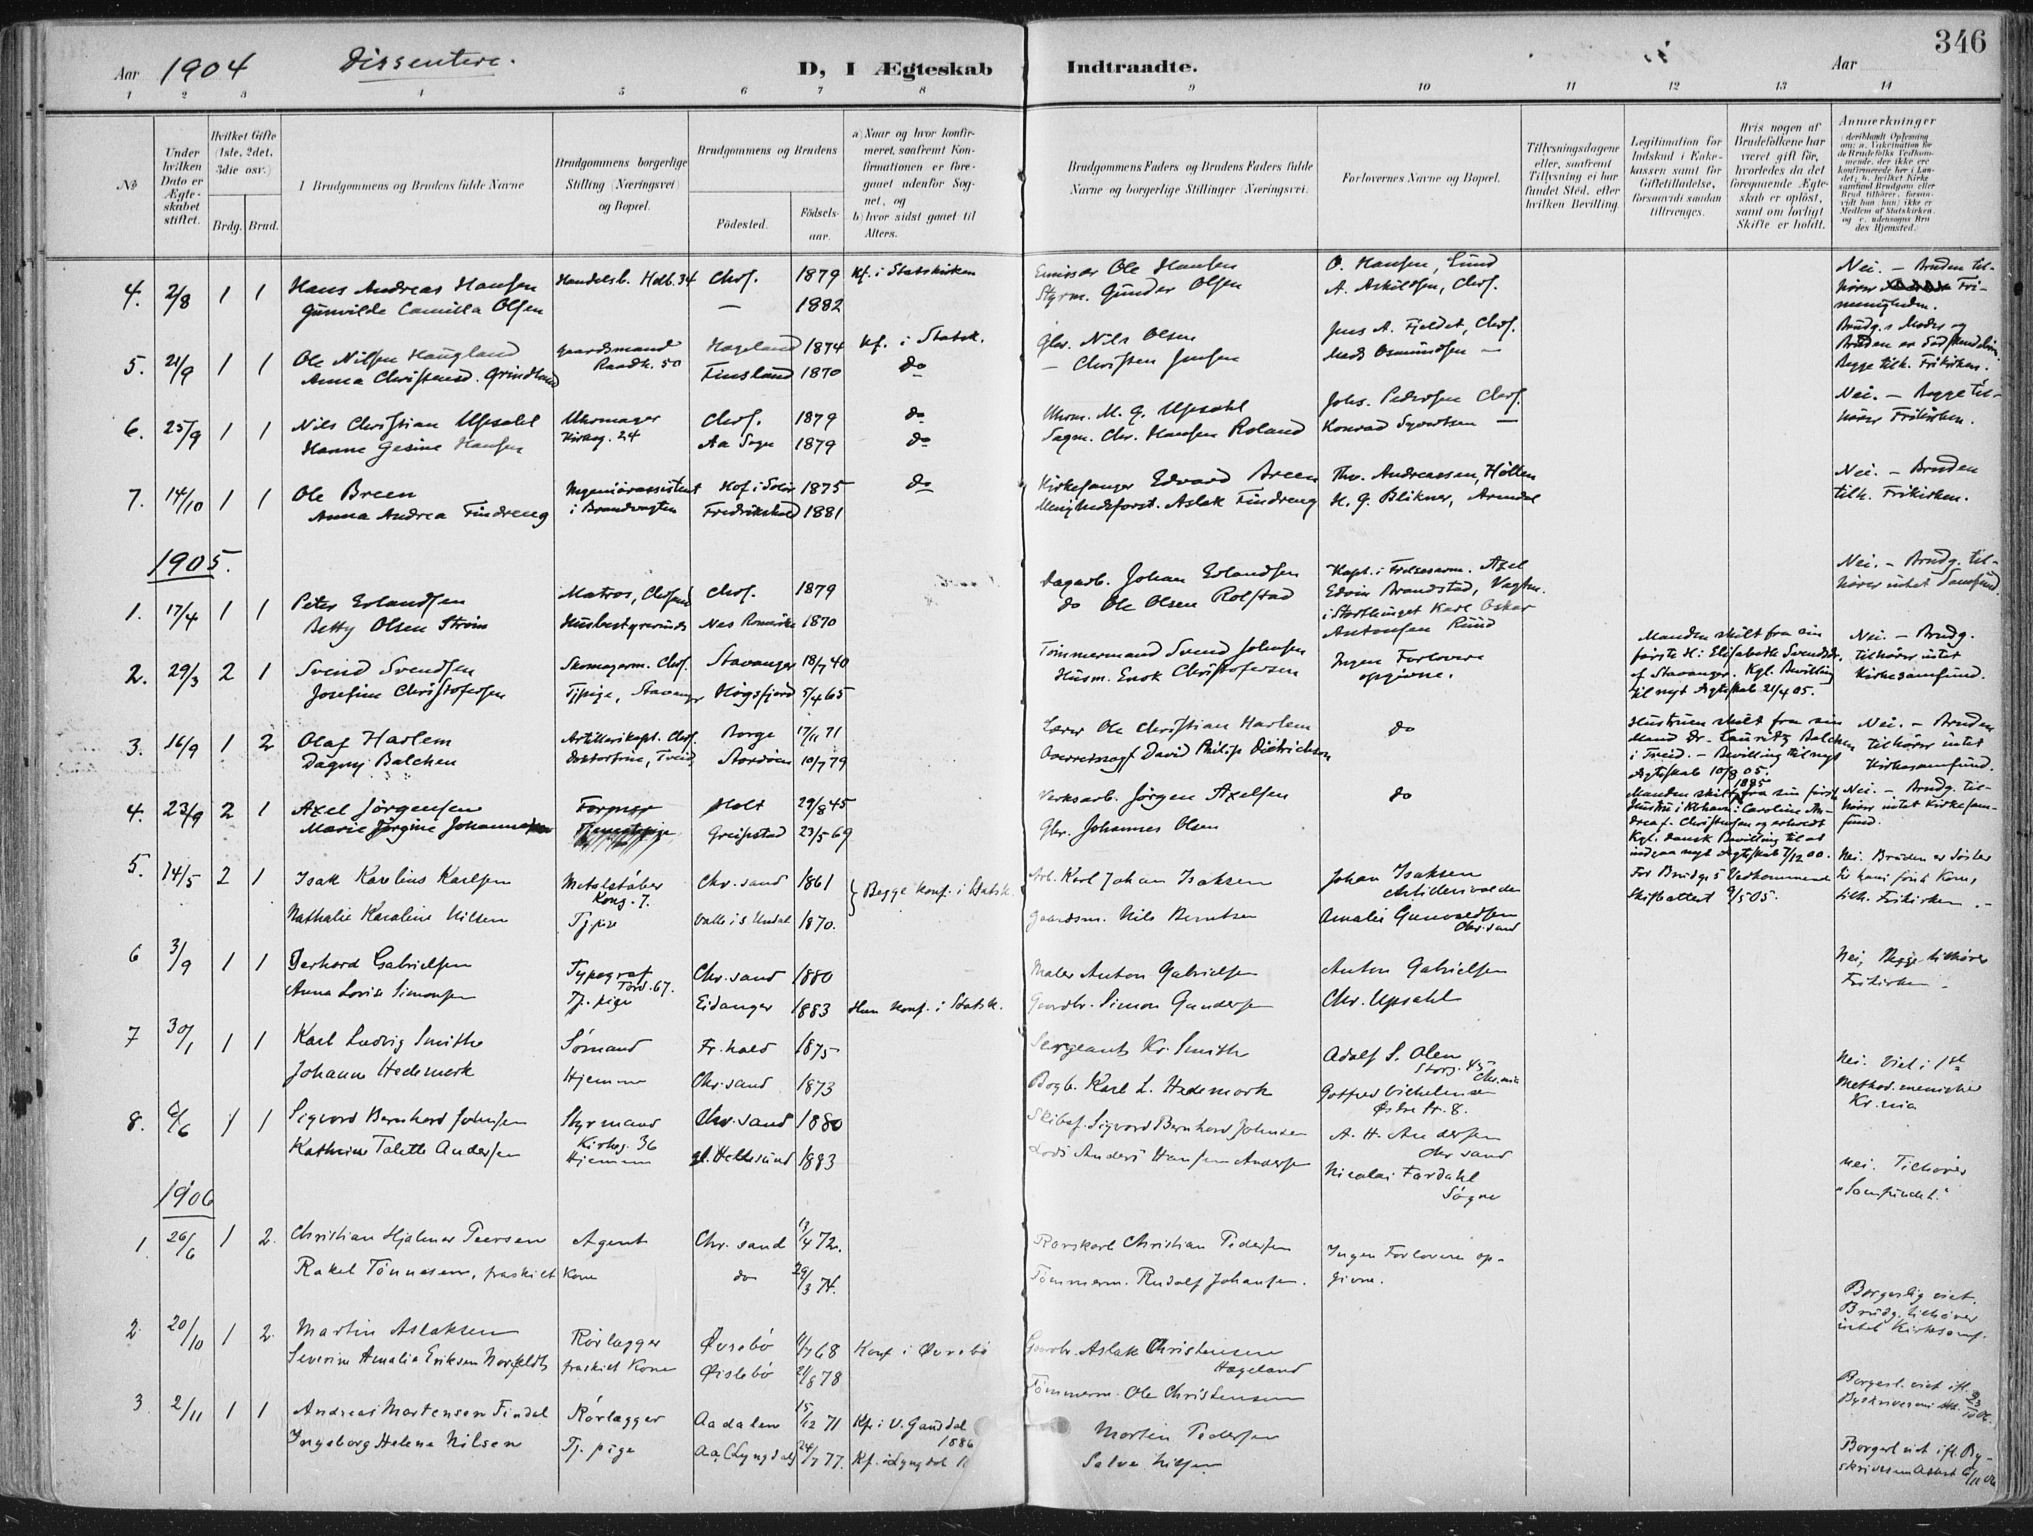 346
Aar 1904 Dissentere. D, I Ægteskab Indtraadte. Aar
1 2 3 4 5 6 7 8 9 10 11 12 13 14
No
Under hvilken Dato er Ægteskabet stiftet.
Hvilket Gifte (1ste, 2det, 3die osv.)
Brdg. Brud.
1 Brudgommens og Brudens fulde Navne
Brudgommens borgerlige Stilling (Næringsvei) og Bopæl.
Brudgommens og Brudens
Födested. Födselsaar.
a) Naar og hvor konfirmeret, saafremt Konfirmationen er foregaaet udenfor Sognet, og
b) hvor sidst gaaet til Alters.
Brudgommens Faders og Brudens Faders fulde Navne og borgerlige Stillinger (Næringsvei.
Forlovernes Navne og Bopæl.
Tillysningsdagene eller, saafremt Tillysning ei har fundet Sted, efter hvilken Bevilling.
Legitimation for Indskud i Enkekassen samt for Giftetilladelse, forsaavidt saadan tiltrænges.
Hvis nogen af Brudefolkene har været gift för, hvorledes da det foregaaende Ægteskab er oplöst, samt om lovligt Skifte er holdt.
Anmærkninger
4. 2/8 1 1 Hans Andreas Hansen Handelsb. Hdlb. 34 Chrs. 1879 Kf. i Statskirken Emissær Ole Hansen O. Hansen, Lund Nei. – Bruden til-
Gunvilde Camilla Olsen — 1882 Styrm. Gunder Olsen A. Askildsen, Chrs. hører Fri-
menigheden.
5. 21/9 1 1 Ole Nilsen Haugland Gaardsmand Hægeland 1874 Kf. i Statsk. Gbr. Nils Olsen Jens A. Fjeldet, Chrs. Brudg.s Moder og
Anna Christensd. Grindland Raadh. 50 Finsland 1870 do — Christen Jensen Mads Osmundsen — Bruden er Sødskendebørn.
Begge tilh. Frikirken.
6. 25/9 1 1 Nils Christian Upsahl Uhrmager Chrs. 1879 do Uhrm. M. G. Upsahl Johs. Pedersen Chrs. Nei. – Begge til-
Hanne Gesine Hansen Kirkeg. 24 Aa Sogn 1879 do Sagm. Chr. Hansen Roland Konrad Syvertsen — hører Frikirken.
7. 14/10 1 1 Ole Breen Ingeniørassistent Hof i Solør 1875 do Kirkesanger Edvard Breen Thv. Andreassen, Holten Nei. – Bruden
Anna Andrea Findreng i Brandvagten Fredrikshald 1881 Menighedsforst. Aslak Findreng H. G. Blikner, Arendal tilh. Frikirken.
1905.
1. 17/4 1 1 Peter Erlandsen Matros, Chrsand Chrs. 1879 Dagarb. Johan Erlandsen Kapt. i Frelsesarm. Axel Nei. – Brudg. til-
Betty Olsen Strøm Husbestyrerinde Nes Romerike 1870 do Ole Olsen Rolstad Edvin Brandstad, Vagtm. hører intet Samfund.
i Storthinget Karl Oskar
Antonsen Ruud
2. 29/3 2 1 Svend Svendsen Skomagerm. Chrs. Stavanger 18/7 40 Tømmermand Svend Johnsen Ingen Forlovere Manden skilt fra sin Nei. – Brudg.
Josefine Christofersen Tjpige, Stavanger Høgsfjord 5/4 65 Husm. Enok Christofersen opgivne. første H: Elisabeth Svendsdr. tilhører intet
af Stavanger. Kgl. Bevilling Kirkesamfund.
til nyt Ægteskab 21/4 05.
3. 16/9 1 2 Olaf Harlem Artillerikapt. Chrs. Borge 17/11 71 Lærer Ole Christian Harlem do Hustruen skilt fra sin Nei. – Bruden
Dagny Balchen Doktorfrue, Tveid, Stordøen 10/7 79 Overretssagf. David Philip Didrichsen Mand Dr. Lauritz Balchen tilhører intet
i Tveid. – Bevilling til nyt Kirkesamfund.
Ægteskab 10/8 05.
4. 23/9 2 1 Axel Jörgensen Former Holt 29/8 45 Verksarb. Jörgen Axelsen do Manden skilt 1895 fra sin første Nei. – Brudg. til-
Marie Jørgine Johannessen Greipstad 23/5 69 Gbr. Johannes Olsen Hustru i Kbhavn: Caroline An- hører intet Kirkesam-
dreaf. Christensen og erholdt fund.
Kgl. dansk Bevilling til at
indgaa nyt Ægteskab 7/12 00.
5. 14/5 2 1 Isak Karelius Karlsen Metalstøber Chr.sand 1861 } Begge konf. i Statsk. Arb. Karl Johan Isaksen Johan Isaksen For Brudg.s Vedkommende Nei. Bruden er Søster
Kong. 7. Artillerivolden Skifteattest 9/5 05. til hans første Kone,
Nathalie Karoline Nilsen Tj.pige Valle i S. Undal 1870. Gaardsm. Nils Berntsen Amalie Gunvaldsen tilh. Frikirken. –
Chr.sand
6 3/9 1 1 Gerhard Gabrielsen Typograf Chr.sand 1880 Maler Anton Gabrielsen Anton Gabrielsen Nei, Begge tilhører
Tord. 67.
Anna Lovise Simonsen Tj. pige Eidanger 1883 Hun konf. i Statsk. Gaardbr. Simon Gundersen Chr. Upsahl Frikirken –
7 30/1 1 1 Karl Ludvig Smith Sømand Fr.hald 1875 Sergeant Kr. Smith Adolf S. Olsen Nei. Viet i 1ste
Storg. 45 Chr.nia
Johanne Hedemark Hjemme Chr.sand 1873 Bogb. Karl L. Hedemark Gotfred Vilhelmsen Method. menighed
Østre Str. 8. Kr.nia
8. 6/6 1 1 Sigvard Bernhard Johnsen Styrmand Chr.sand 1880 Skibsf. Sigvard Bernhard Johnsen A. H. Andersen
Kirkeg. 36 Chr.sand
Kathrine Talette Andersen Hjemme gl. Hellesund 1883 Lods Anders Hansen Andersen Nicolai Fardahl Nei. Tilhører
Søgne "Samfundet."
1906
1. 26/6 1 2. Christian Hjalmer Peersen Agent Chr.sand 13/4 72. Rorskarl Christian Pedersen Ingen Forlovere op-
Rakel Tönnesen, fraskilt Kone do 29/3 74. Tömmerm. Rudolf Johansen. givne.
Borgerlig viet.
Brudg. tilhører
intet Kirkesamf.
2. 20/10 1 2. Martin Aslaksen Rørlægger Øvrebø 11/7 68 Konf i Øvrebø Gaardbr. Aslak Christensen
Hægeland
Severine Amalie Eriksen Norfeldt, fraskilt Kone Øislebö 21/8 78 Tömmerm. Ole Christensen Borgerl. viet ifl.
3 2/11 1 1 Andreas Mortensen Findal Rørlægger Aadalen 15/12 71 Kf. i V. Gausdal 1886 Morten Pedersen
Ingeborg Helene Nilsen Tj. pige Aa, (Lyngdal) 24/7 77. Kf. i Lyngdal Salve Nilsen Borgerl. viet ifl. By-
skriverens Attest 6/11 06